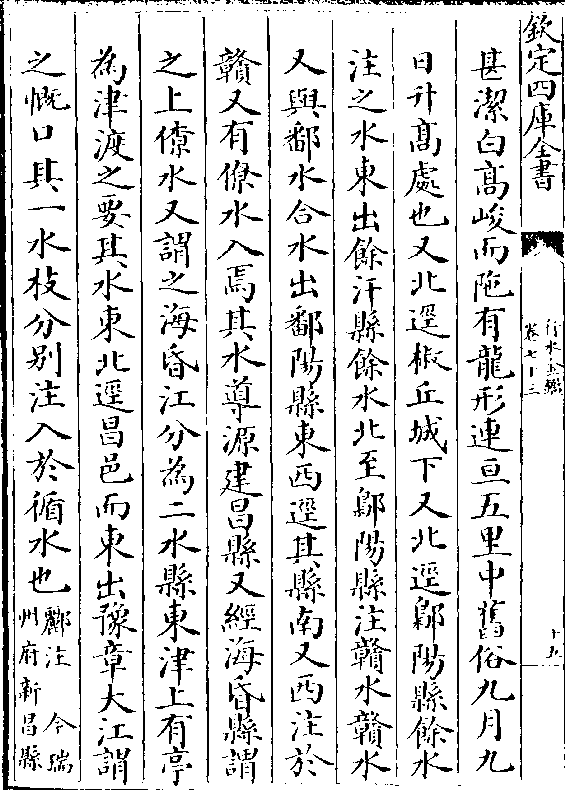 欽定四庫全書
行水金鑑
卷七十三
十五
甚潔白高峻而陁有龍形連亘五里中舊俗九月九
日升高處也又北逕椒丘城下又北逕鄡陽縣餘水
注之水東出餘汗縣餘水北至鄡陽縣注贛水贛水
又與鄱水合水出鄱陽縣東西逕其縣南又西注於
贛又有僚水入焉其水導源建昌縣又經海昏縣謂
之上僚水又謂之海昏江分為二水縣東津上有亭
為津渡之要其水東北逕昌邑而東出豫章大江謂
之慨口其一水枝分别注入於循水也酈注 今瑞
州府新昌縣